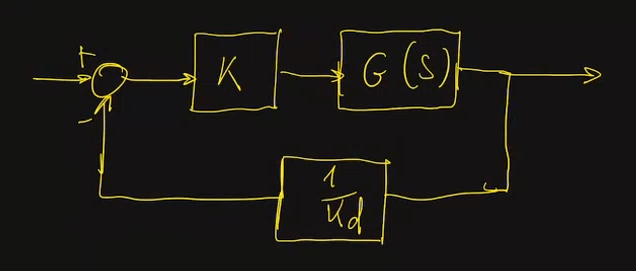 +
K
G(S)
-
1
Kd